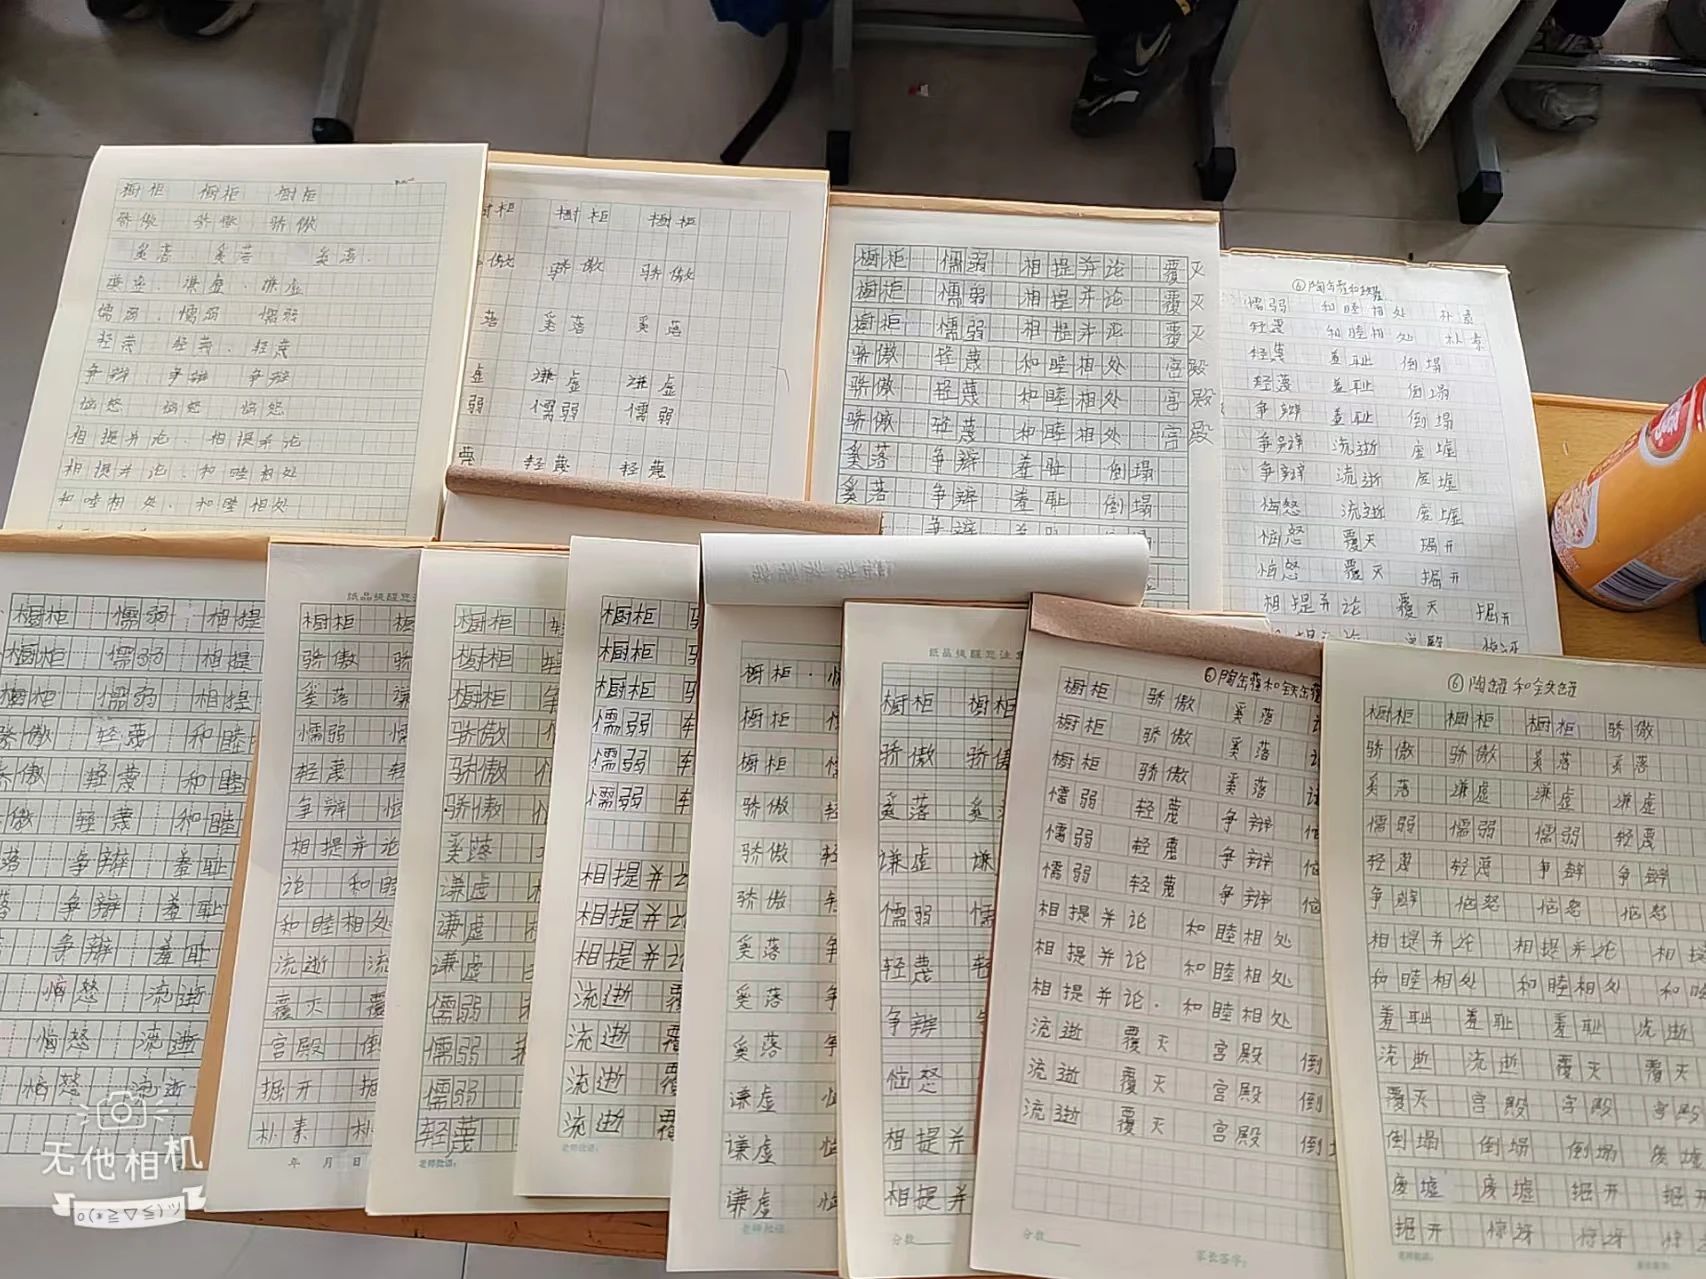 橱柜 橱柜 橱柜
骄傲 骄傲 骄傲
奚落 奚落 奚落
谦虚 谦虚 谦虚
懦弱 懦弱 懦弱
轻蔑 轻蔑 轻蔑
争辩 争辩 争辩
恼怒 恼怒 恼怒
相提并论 相提并论
相提并论 和睦相处
和睦相处 和睦相处
橱柜 橱柜
骄傲 骄傲
落 奚落 奚落
虚 谦虚 谦虚
弱 懦弱 懦弱
蔑 轻蔑 轻蔑
橱柜 懦弱 相提并论 覆灭
橱柜 懦弱 相提并论 覆灭
橱柜 懦弱 相提并论 覆灭
骄傲 轻蔑 和睦相处 宫殿
骄傲 轻蔑 和睦相处 宫殿
骄傲 轻蔑 和睦相处 宫殿
奚落 争辩 羞耻 倒塌
奚落 争辩 羞耻 倒塌
⑥陶罐和铁罐
懦弱 和睦相处 朴素
轻蔑 和睦相处 朴素
轻蔑 羞耻 倒塌
轻蔑 羞耻 倒塌
争辩 羞耻 倒塌
争辩 流逝 废墟
争辩 流逝 废墟
恼怒 流逝 废墟
恼怒 覆灭 掘开
恼怒 覆灭 掘开
相提并论 覆灭 掘开
橱柜 懦弱 相提
橱柜 懦弱 相提
橱柜 懦弱 相提
骄傲 轻蔑 和睦
傲 轻蔑 和睦
傲 轻蔑 和睦
落 争辩 羞耻
落 争辩 羞耻
争辩 羞耻
恼怒 流逝
恼怒 流逝
恼怒 流逝
橱柜
骄傲
奚落
懦弱
轻蔑
争辩
相提并论
论 和睦
和睦相处
流逝 流
覆灭 覆
宫殿 倒
掘开 掘
朴素 朴
年 月 日
橱柜
橱柜
橱柜
骄傲
骄傲
骄傲
奚落
谦虚
谦虚
谦虚
懦弱
懦弱
懦弱
轻蔑
老师批语:
橱柜
橱柜
橱柜
懦弱
懦弱
懦弱
相提并论
相提并论
相提并论
流逝 覆
流逝 覆
流逝 覆
流逝
老师批语:
橱柜
橱柜
橱柜
骄傲
骄傲
骄傲
奚落
奚落
奚落
谦虚
谦虚
谦虚
老师批语
橱柜 橱柜
骄傲 骄傲
奚落 奚
谦虚 谦
懦弱 懦
轻蔑 轻
争辩
恼怒
相提并
相提并
分数
⑥陶罐和铁罐
橱柜 骄傲 奚落
橱柜 骄傲 奚落
橱柜 骄傲 奚落
懦弱 轻蔑 争辩 恼
懦弱 轻蔑 争辩 恼
懦弱 轻蔑 争辩 恼
相提并论 和睦相处
相提并论 和睦相处
相提并论 和睦相处
流逝 覆灭 宫殿 倒
流逝 覆灭 宫殿 倒
流逝 覆灭 宫殿 倒
分数
家长签字:
⑥陶罐和铁罐
橱柜 橱柜 橱柜 骄傲
骄傲 骄傲 奚落 奚落
奚落 谦虚 谦虚 谦虚
懦弱 懦弱 懦弱 轻蔑
轻蔑 轻蔑 争辩 争辩
争辩 恼怒 恼怒 恼怒
相提并论 相提并论 相提
和睦相处 和睦相处 和睦
羞耻 羞耻 羞耻 流逝
流逝 流逝 覆灭 覆灭
覆灭 宫殿 宫殿 宫殿
倒塌 倒塌 倒塌 废墟
废墟 废墟 掘开 掘开
掘开 惊讶 惊讶
无他相机